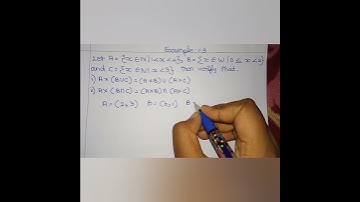 Example 1.3
Let A = {x ∈ N | 1 < x < 4}, B = {x ∈ W | 0 ≤ x < 2}
and C = {x ∈ N | x < 3} Then verify that
1) A × (B ∪ C) = (A × B) ∪ (A × C)
2) A × (B ∩ C) = (A × B) ∩ (A × C)
A = {2, 3} B = {0, 1}